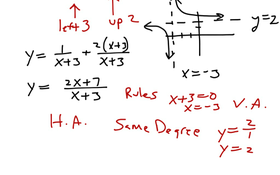 left+3 up 2
y=2
y = 1/(x+3) + 2(x+3)/(x+3)
x=-3
y = (2x+7)/(x+3)
Rules x+3=0
x=-3 V.A.
H.A. Same Degree y = 2/1
y = 2